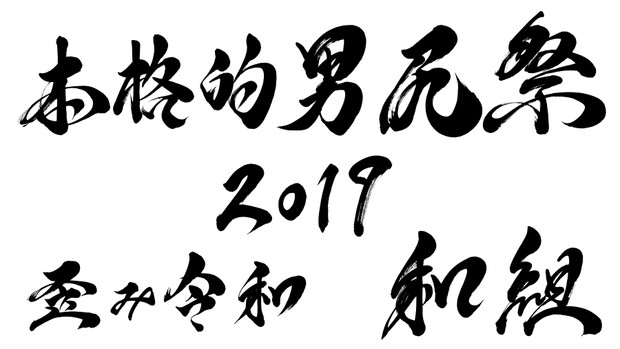 本格的男尻祭
2019
歪み令和 和組